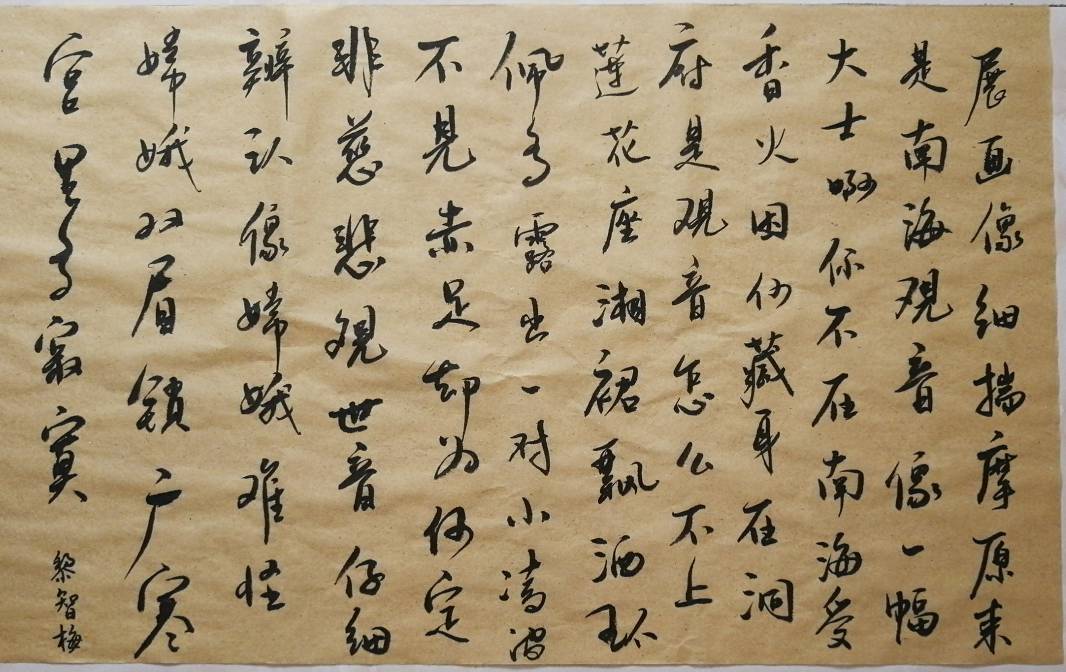 展画像细揣摩原来
是南海观音像一幅
大士啊你不在南海受
香火因何藏身在洞
府是观音怎么不上
蓮花座湘裙飘洒环
佩多露出一对小凌波
不見赤足却为何定
非慈悲观世音仔细
辨认像嫦娥难怪
嫦娥双眉锁广寒
宫里多寂寞
黎智梅